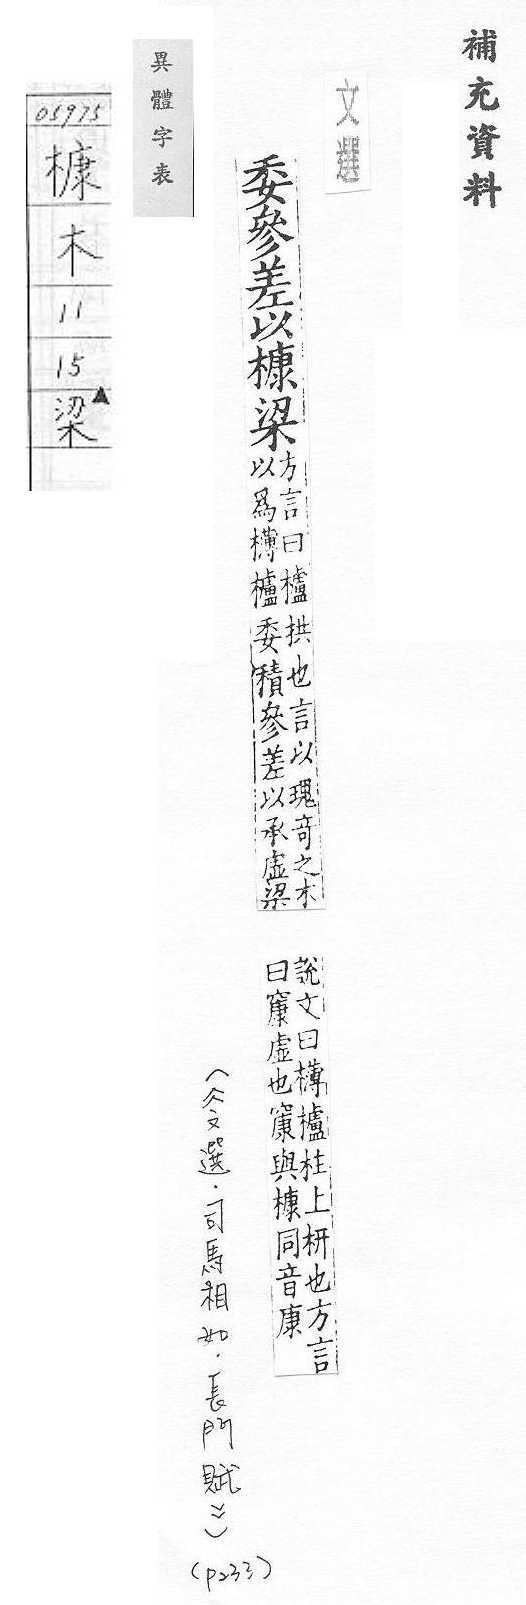 補充資料
文選
委參差以槺梁
方言曰櫨拱也言以瑰奇之木
以爲欂櫨委積參差以承虛梁
說文曰欂櫨柱上枅也方言
曰㝩虛也㝩與槺同音康
（《文選．司馬相如．長門賦》）
（p233）
異體字表
05975
槺
木
11
15
梁